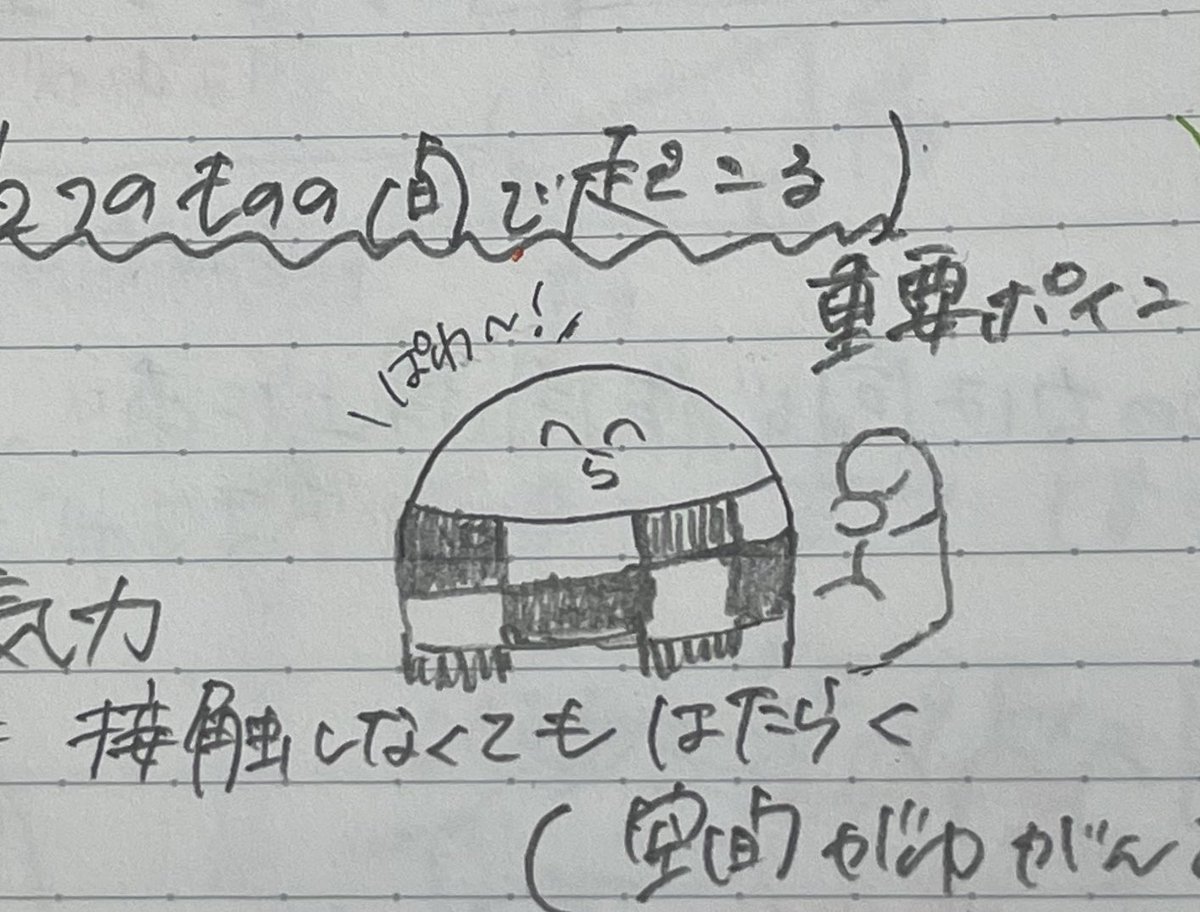 2つのものの間で起こる)
重要ポイン
ぱわ~!
気力
接触しなくてもはたらく
(空間がゆがん